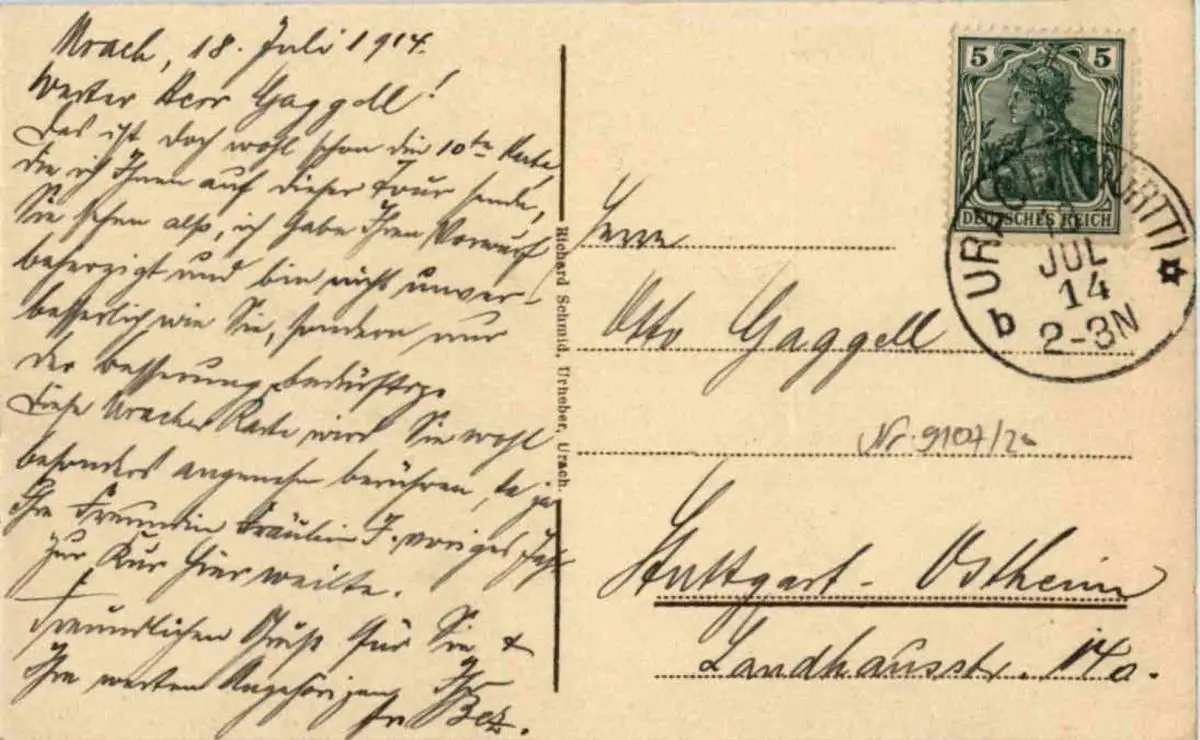 Urach, 18. Juli 1914.
Werter Herr Gaggell!
Das ist doch wohl schon die 10te Karte,
die ich Ihnen auf dieser Tour sende,
Sie sehen also, ich habe Ihren Vorwurf
beherzigt und bin nicht unver-
besserlich wie Sie, sondern nur
der Besserung bedürftig.
Diese Uracher Karte wird Sie wohl
besonders angenehm berühren, da ja
Ihre Freundin Fräulein F. voriges Jahr
zur Kur hier weilte.
Freundlichen Gruß für Sie &
Ihre werten Angehörigen Ihr
Bez.
Richard Schmid, Urheber, Urach.
5 5
DEUTSCHES REICH
URACH
JUL
14
2-3N
b
Herrn
Otto Gaggell
Nr. 9107/2a
Stuttgart-Ostheim
Landhausstr. 14a.